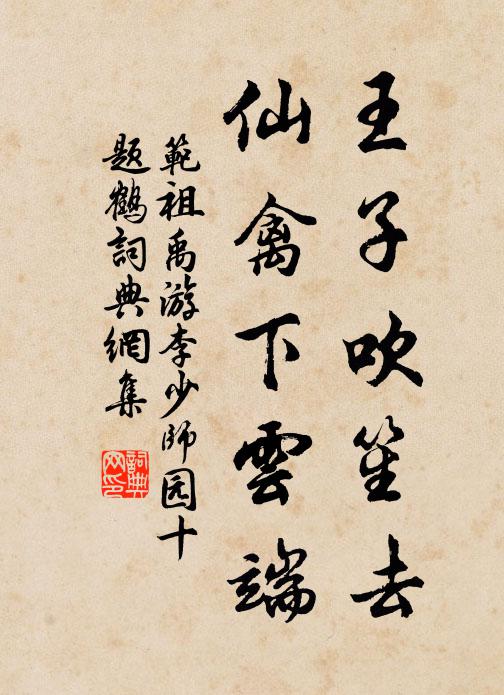 王子吹笙去
仙禽下雲端
範祖禹游李少师园十
题鶴詞典網集
詞典网印